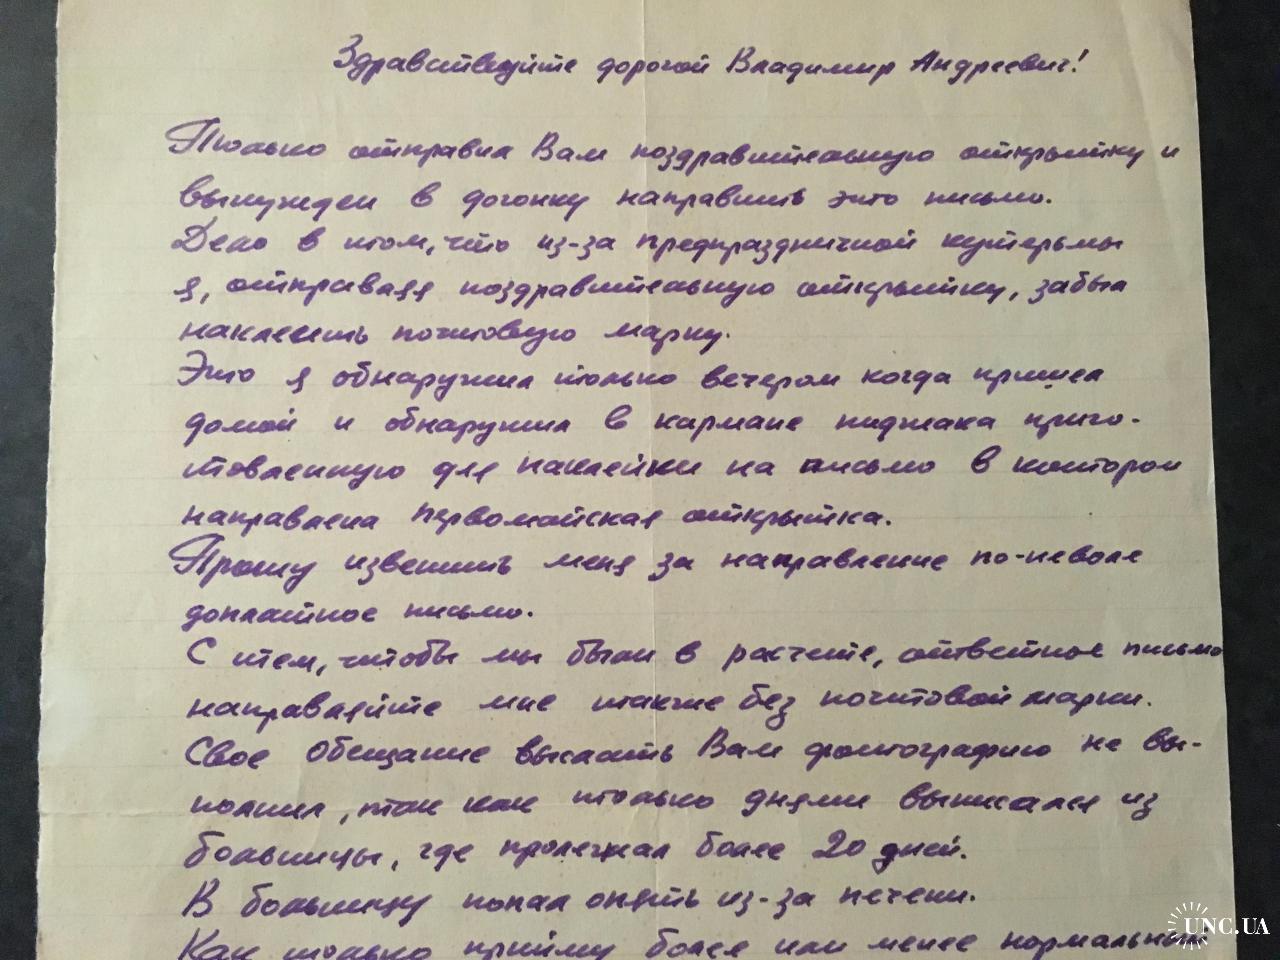 Здравствуйте дорогой Владимир Андреевич!
Только отправил Вам поздравительную открытку и
вынужден в догонку направить это письмо.
Дело в том, что из-за предпраздничной кутерьмы
я, отправляя поздравительную открытку, забыл
наклеить почтовую марку.
Это я обнаружил только вечером когда пришел
домой и обнаружил в кармане пиджака приго-
товленную для наклейки на письмо в котором
направлена первомайская открытка.
Прошу извенить меня за направление по-неволе
доплатное письмо.
С тем, чтобы мы были в расчете, ответное письмо
направляйте мне также без почтовой марки.
Свое обещание выслать Вам фотографию не вы-
полнил, так как только днями выписался из
больницы, где пролежал более 20 дней.
В больницу попал опять из-за печени.
Как только прийму более или менее нормальный
UNC.UA